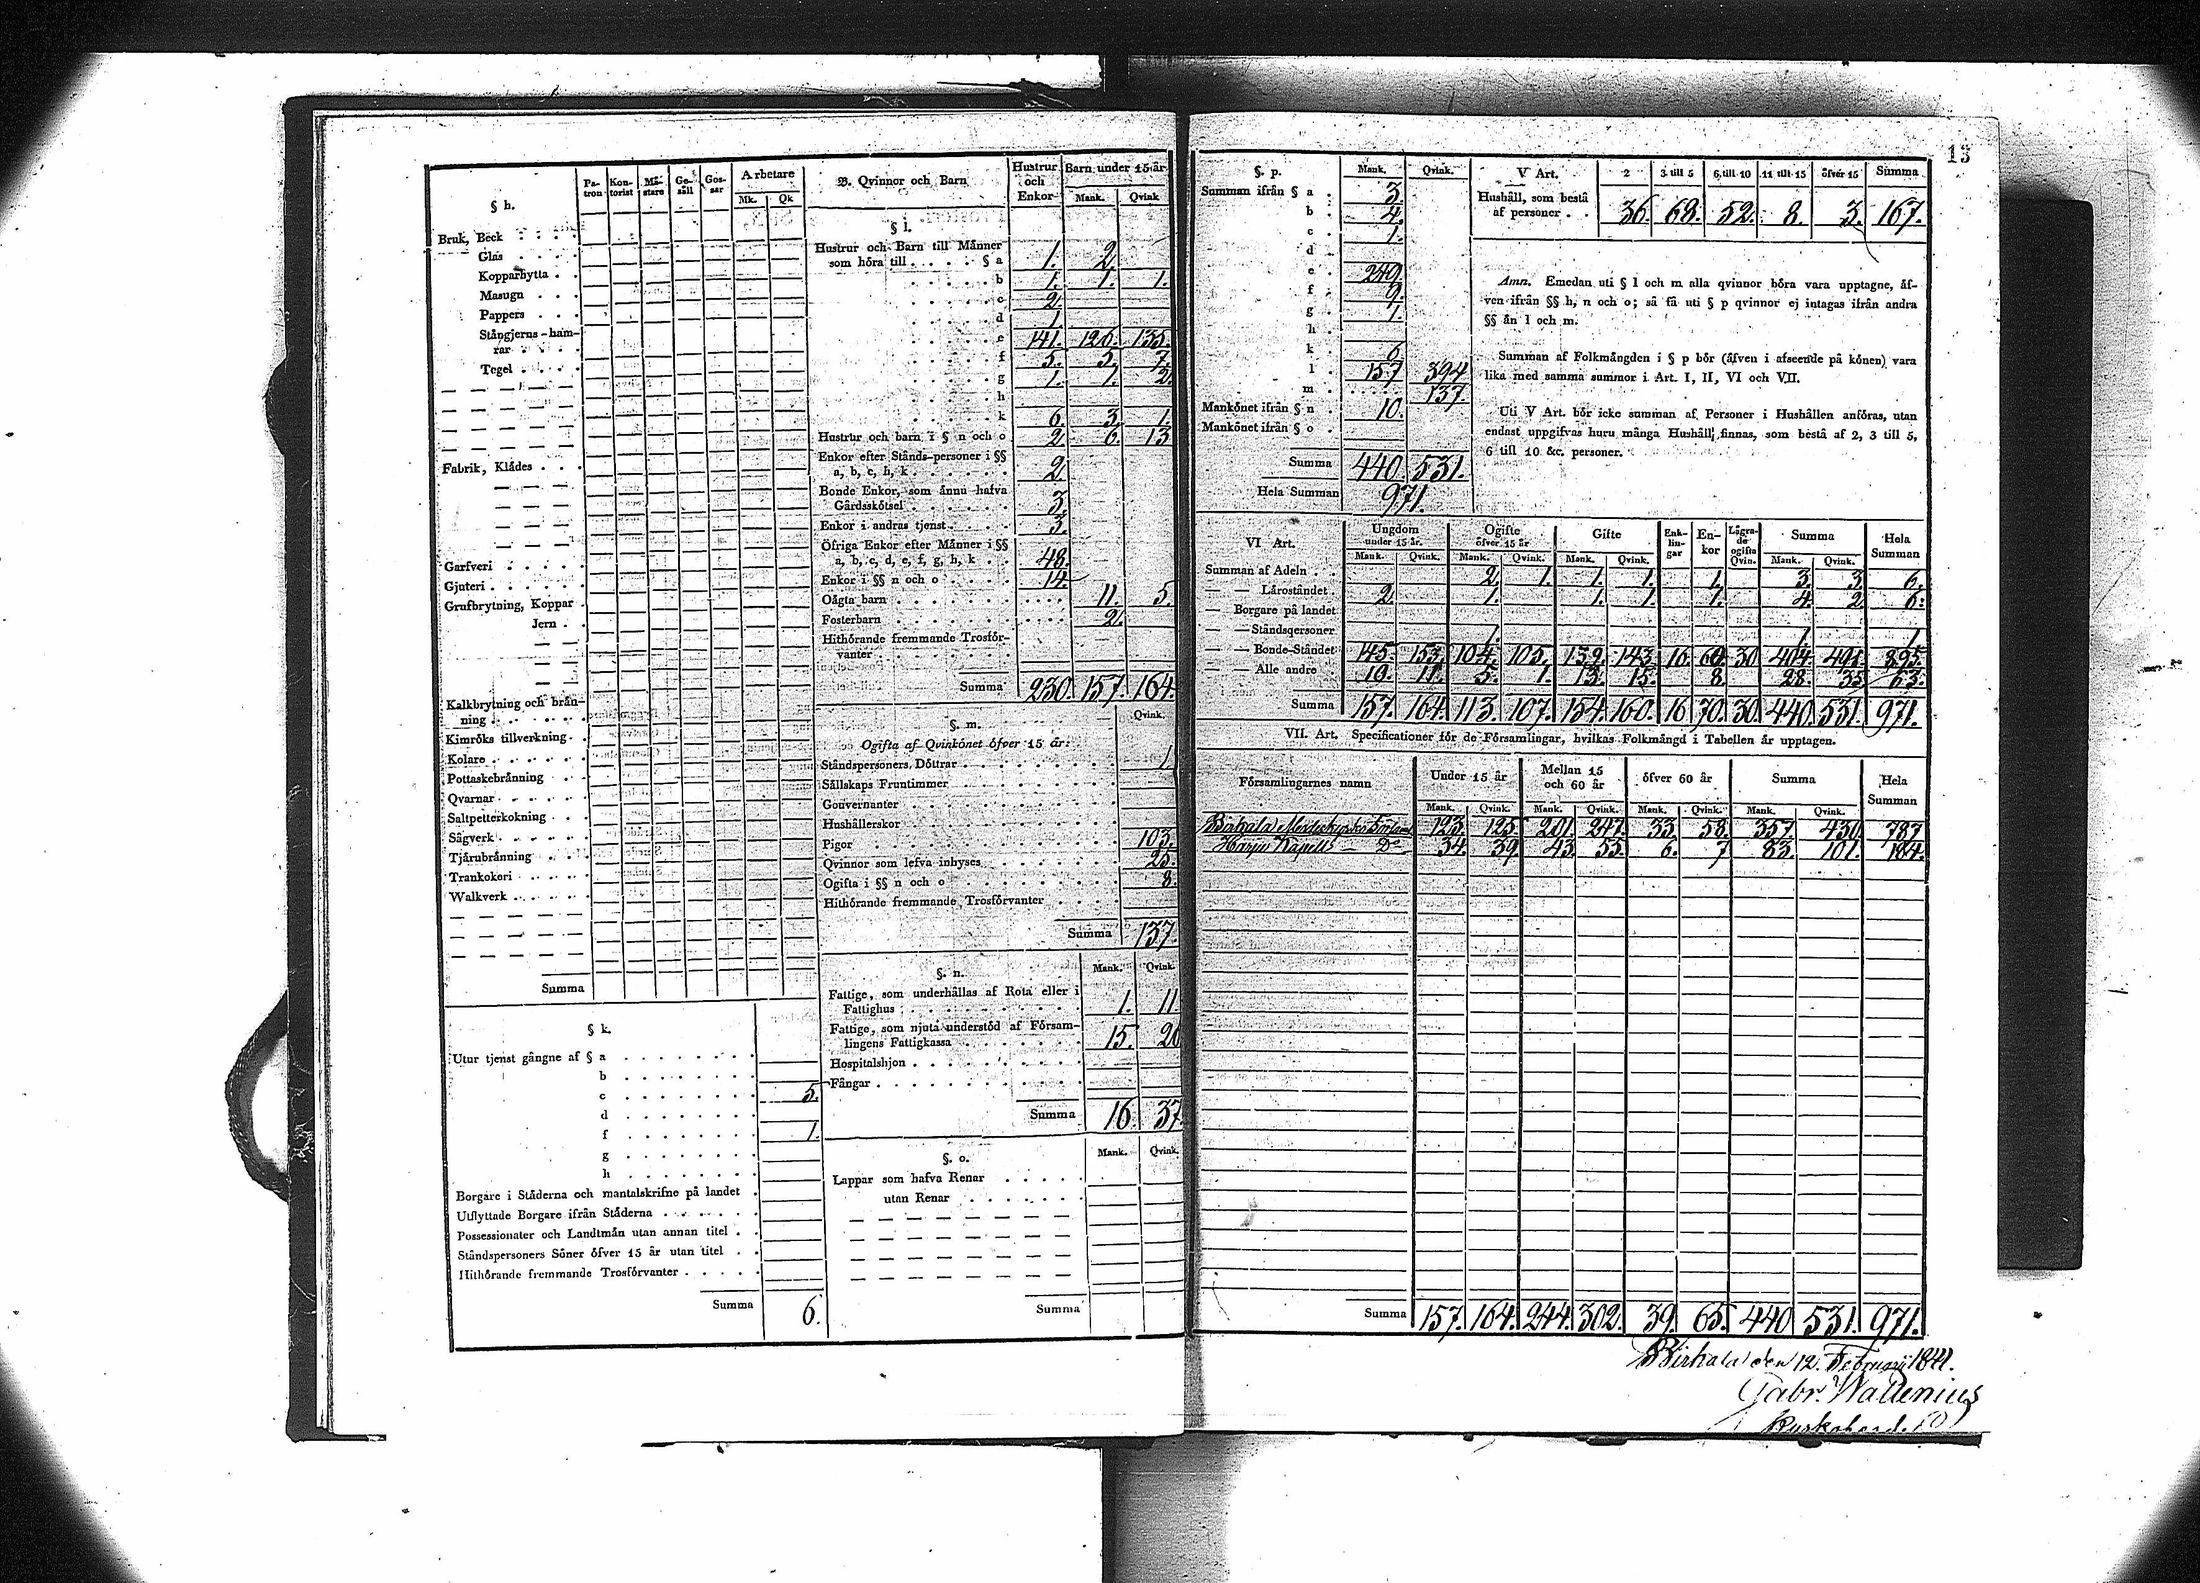 13
§ h.
Pa-tron Kon-torist Mä-stare Ge-säll Gos-sar Arbetare
Mk. Qk
Bruk, Beck
Glas
Kopparhytta
Masugn
Pappers
Stångjerns-ham-
rar
Tegel
Fabrik, Klådes
Garfveri
Gjuteri
Grufbrytning, Koppar
Jern
Kalkbrytning och brän-
ning
Kimröks tillverkning
Kolare
Pottaskebränning
Qvarnar
Saltpetterkokning
Sågverk
Tjärubränning
Trankokeri
Walkverk
Summa
§ k.
Utur tjenst gångne af § a
b
c 5.
d
f 1.
g
h
Borgare i Städerna och mantalskrifne på landet
Utflyttade Borgare ifrån Städerna
Possessionater och Landtmän utan annan titel
Ståndspersoners Söner öfver 15 år utan titel
Hithörande fremmande Trosförvanter
Summa 6.
B. Qvinnor och Barn Hustrur och Enkor Barn under 15 år
Mank. Qvink
§ l.
Hustrur och Barn till Männer
som höra till § a 1. 2.
b 1. 1. 1.
c 2.
d 1.
e 141. 126. 135.
f 5. 5. 7.
g 1. 1. 2.
h
k 6. 3. 1.
Hustrur och barn i § n och o 2. 6. 13
Enkor efter Stånds-personer i §§
a, b, c, h, k 2.
Bonde Enkor, som ännu hafva
Gårdsskötsel 3.
Enkor i andras tjenst 3.
Öfriga Enkor efter Männer i §§
a, b, c, d, e, f, g, h, k 48.
Enkor i §§ n och o 14
Oägta barn 11. 5.
Fosterbarn 2.
Hithörande fremmande Trosför-
vanter
Summa 230. 157. 164.
§. m. Qvink.
Ogifta af Qvinkönet öfver 15 år:
Ståndspersoners Döttrar 1.
Sällskaps Fruntimmer
Gouvernanter
Hushållerskor
Pigor 103.
Qvinnor som lefva inhyses 25.
Ogifta i §§ n och o 8.
Hithörande fremmande Trosförvanter
Summa 137.
§. n. Mank. Qvink.
Fattige, som underhållas af Rota eller i
Fattighus 1. 11.
Fattige, som njuta understöd af Försam-
lingens Fattigkassa 15. 26
Hospitalshjon
Fångar
Summa 16. 37.
§. o. Mank. Qvink.
Lappar som hafva Renar
utan Renar
Summa
§. p. Mank. Qvink.
Summan ifrån § a 3.
b 4.
c 1.
d
e 249.
f 9.
g 1.
h
k 6.
l 157 394
m 137.
Mankönet ifrån § n 10.
Mankönet ifrån § o
Summa 440. 531.
Hela Summan 971.
V Art. 2 3 till 5 6 till 10 11 till 15 öfver 15 Summa
Hushåll, som bestå
af personer 36. 68. 52. 8. 3. 167.
Anm. Emedan uti § l och m alla qvinnor böra vara upptagne, äf-
ven ifrån §§ h, n och o; så få uti § p qvinnor ej intagas ifrån andra
§§ än l och m.
Summan af Folkmängden i § p bör (äfven i afseende på könen) vara
lika med samma summor i Art. I, II, VI och VII.
Uti V Art. bör icke summan af Personer i Hushållen anföras, utan
endast uppgifvas huru många Hushåll finnas, som bestå af 2, 3 till 5,
6 till 10 &c. personer.
VI Art. Ungdom under 15 år. Ogifte öfver 15 år Gifte Enk-lin-gar En-kor Lägra-de ogifta Qvin. Summa Hela Summan
Mank. Qvink. Mank. Qvink. Mank. Qvink. Mank. Qvink.
Summan af Adeln 2. 1. 1. 1. 1. 3. 3. 6.
— — Läroståndet 2. 1. 1. 1. 1. 4. 2. 6.
— Borgare på landet
— — Ståndspersoner 1. 1. 1.
— — Bonde-Ståndet 145. 153. 104. 105. 139. 143. 16. 60. 30. 404. 491. 895.
— — Alle andre 10. 11. 5. 1. 13. 15. 8. 28. 35. 63.
Summa 157. 164. 113. 107. 154. 160. 16. 70. 30. 440. 531. 971.
VII. Art. Specificationer för de Församlingar, hvilkas Folkmängd i Tabellen är upptagen.
Församlingarnes namn Under 15 år Mellan 15 och 60 år öfver 60 år Summa Hela Summan
Mank. Qvink. Mank. Qvink. Mank. Qvink. Mank. Qvink.
Birkala Moderkyrko Församl. 123. 125. 201. 247. 33. 58. 357. 430. 787.
Harju Kapells — Do 34. 39. 43. 55. 6. 7. 83. 101. 184.
Summa 157. 164. 244. 302. 39. 65. 440. 531. 971.
Birkala den 12. Februarii 1841.
Gabr. Wallenius
Kyrkoherde